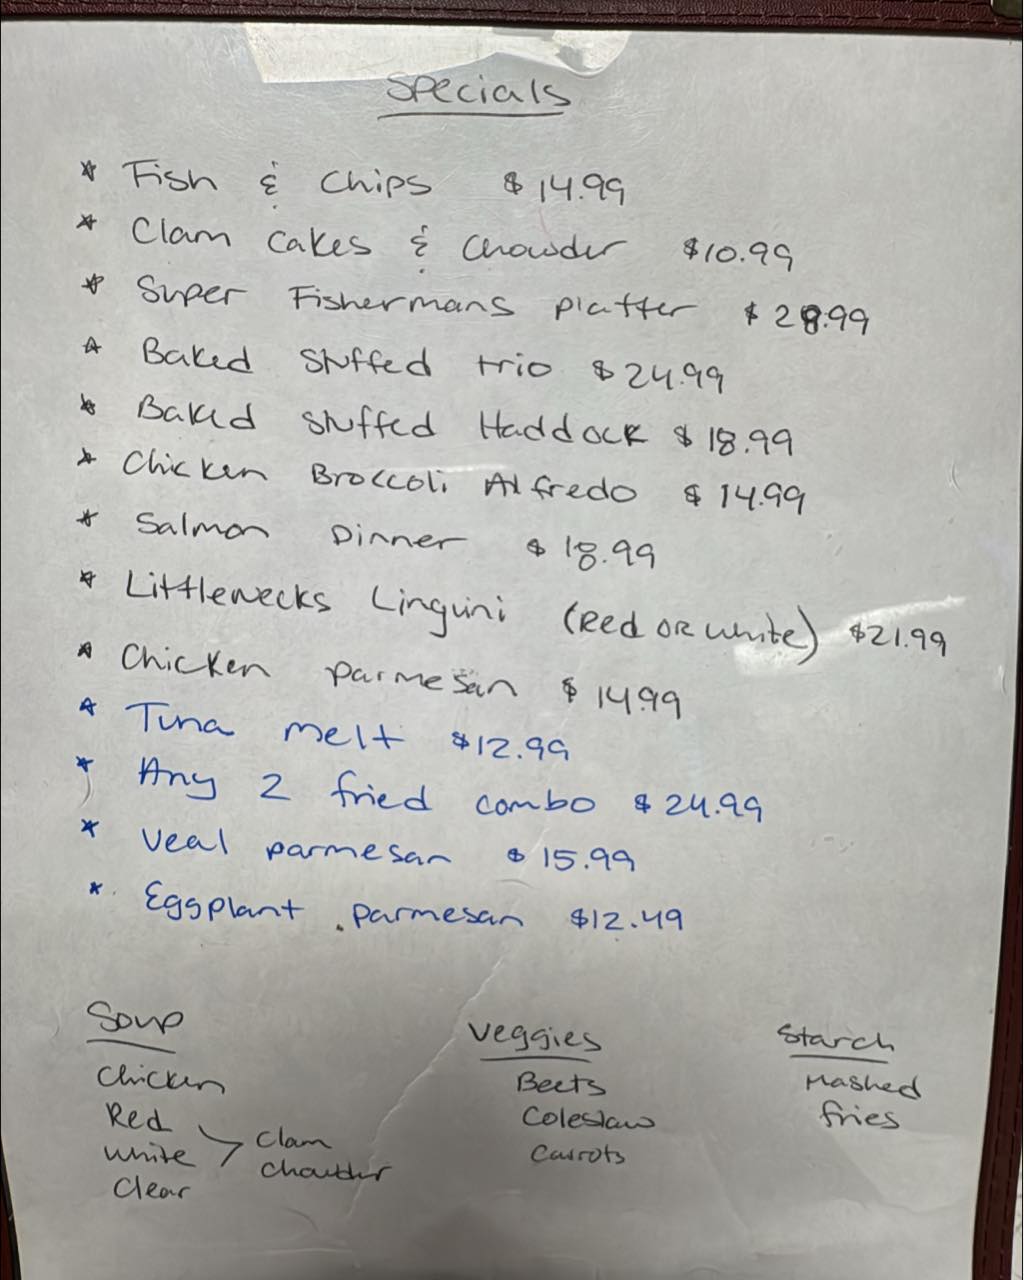 Specials
* Fish & Chips $14.99
* Clam cakes & Chowder $10.99
* Super Fishermans platter $28.99
* Baked Stuffed trio $24.99
* Baked Stuffed Haddock $18.99
* Chicken Broccoli Alfredo $14.99
* Salmon Dinner $18.99
* Littlenecks Linguini (Red or white) $21.99
* Chicken parmesan $14.99
* Tuna melt $12.99
* Any 2 fried combo $24.99
* Veal parmesan $15.99
* Eggplant parmesan $12.49
Soup
Chicken
Red
White
Clear
Clam
Chowder
Veggies
Beets
Coleslaw
Carrots
Starch
Mashed
fries